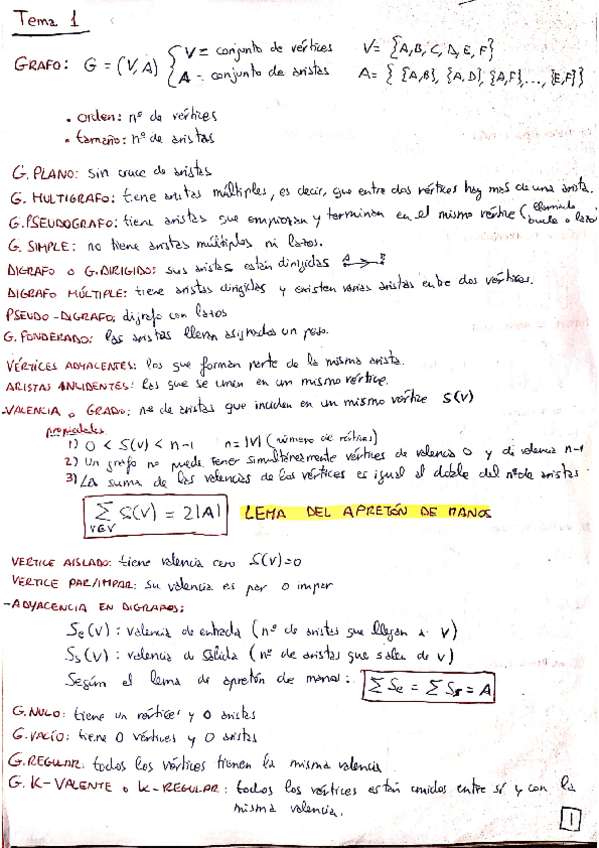 Tema 1
GRAFO: G = (V, A) { V = conjunto de vértices V = {A, B, C, D, E, F}
A = conjunto de aristas A = { {A,B}, {A,D}, {A,F}, ..., {E,F} }
• orden: nº de vértices
• tamaño: nº de aristas
G. PLANO: sin cruce de aristas
G. MULTIGRAFO: tiene aristas múltiples, es decir, que entre dos vértices hay mas de una arista.
G. PSEUDOGRAFO: tiene aristas que empiezan y terminan en el mismo vértice (llamado bucle o lazo)
G. SIMPLE: no tiene aristas múltiples ni lazos.
DIGRAFO O G. DIRIGIDO: sus aristas están dirigidas A → B
DIGRAFO MÚLTIPLE: tiene aristas dirigidas y existen varias aristas entre dos vértices.
PSEUDO-DIGRAFO: digrafo con lazos
G. PONDERADO: las aristas llevan asignadas un peso.
VÉRTICES ADYACENTES: los que forman parte de la misma arista.
ARISTAS INCIDENTES: las que se unen en un mismo vértice.
-VALENCIA o GRADO: nº de aristas que inciden en un mismo vértice S(v)
propiedades
1) 0 < S(v) < n-1 n = |V| (número de vértices)
2) Un grafo no puede tener simultáneamente vértices de valencia 0 y de valencia n-1
3) La suma de las valencias de los vértices es igual al doble del nº de aristas
∑ S(V) = 2|A| LEMA DEL APRETÓN DE MANOS
V∈V
VERTICE AISLADO: tiene valencia cero S(v)=0
VERTICE PAR/IMPAR: su valencia es par o impar
-ADYACENCIA EN DIGRAFOS:
Se(v): valencia de entrada (nº de aristas que llegan a V)
Ss(v): valencia de salida (nº de aristas que salen de v)
Según el lema de apretón de manos: ∑Se = ∑Ss = A
G. NULO: tiene un vértices y 0 aristas
G. VACÍO: tiene 0 vértices y 0 aristas
G. REGULAR: todos los vértices tienen la misma valencia
G. K-VALENTE o K-REGULAR: todos los vértices están unidos entre sí y con la
misma valencia.
1